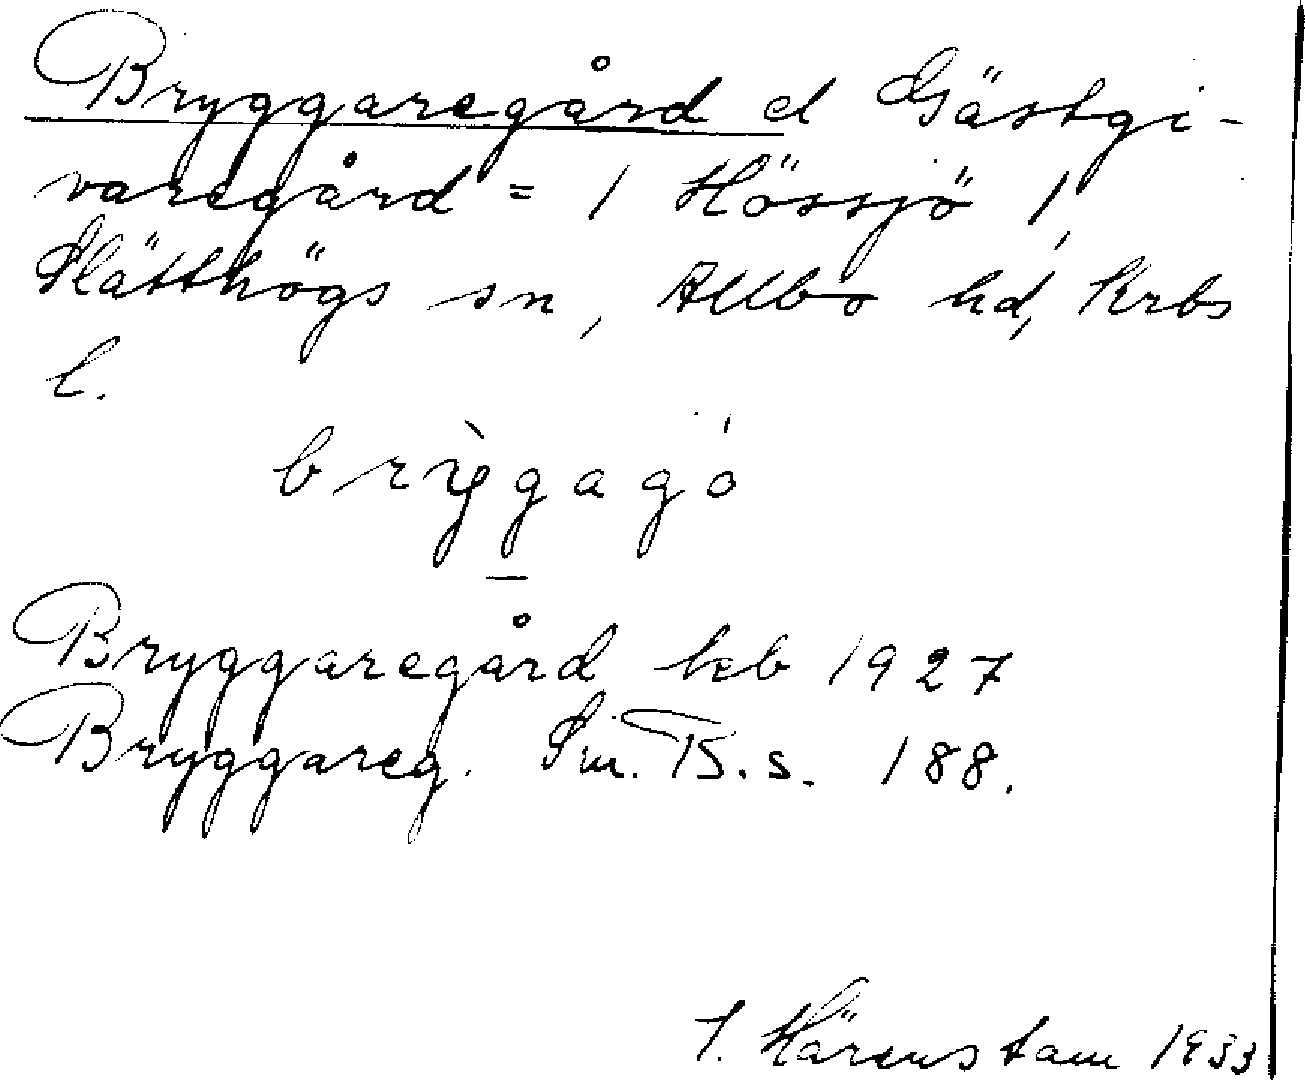 Bryggaregård el Gästgi-
varegård = 1 Hössjö 1,
Slätthögs sn, Allbo hd, Krbs
l.
bryggagó
Bryggaregård kb 1927
Bryggareg. Sm. B. s. 188.
J. Härenstam 1933